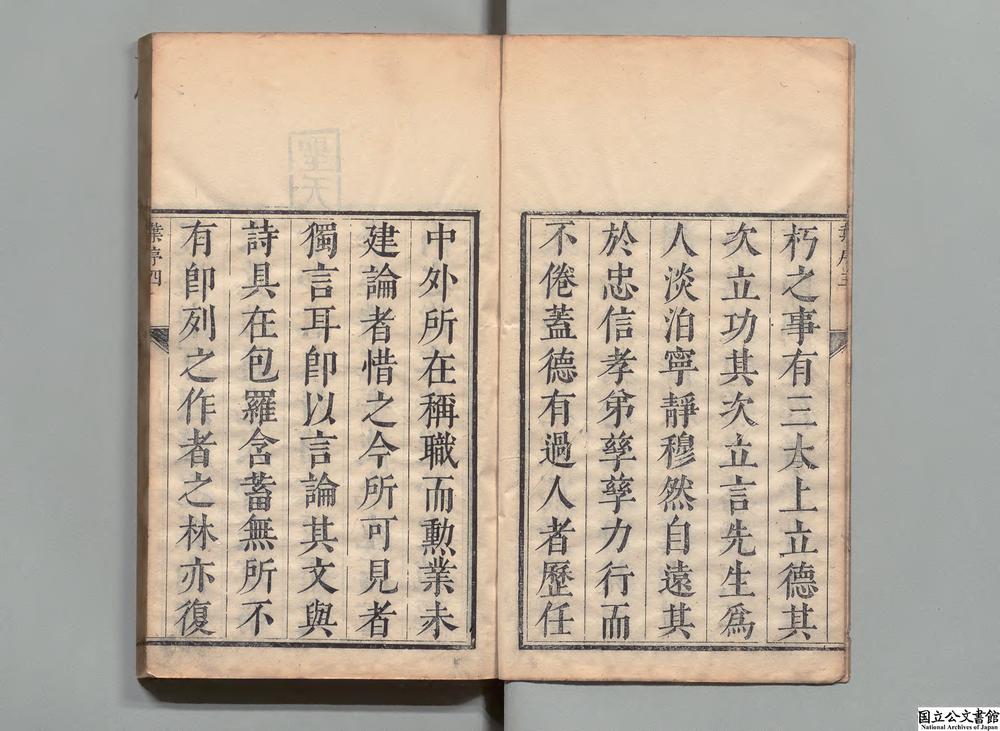 朽之事有三太上立德其
次立功其次立言先生爲
人淡泊寧靜穆然自遠其
於忠信孝弟孳孳力行而
不倦蓋德有過人者歷任
中外所在稱職而勳業未
建論者惜之今所可見者
獨言耳卽以言論其文與
詩具在包羅含蓄無所不
有卽列之作者之林亦復
葉序四
国立公文書館
National Archives of Japan